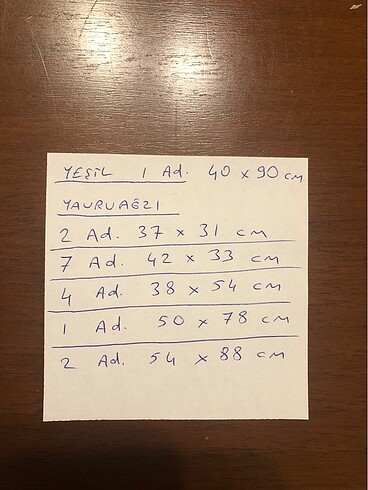 YEŞİL 1 Ad. 40 x 90 cm
YAVRUAĞZI
2 Ad. 37 x 31 cm
7 Ad. 42 x 33 cm
4 Ad. 38 x 54 cm
1 Ad. 50 x 78 cm
2 Ad. 54 x 88 cm